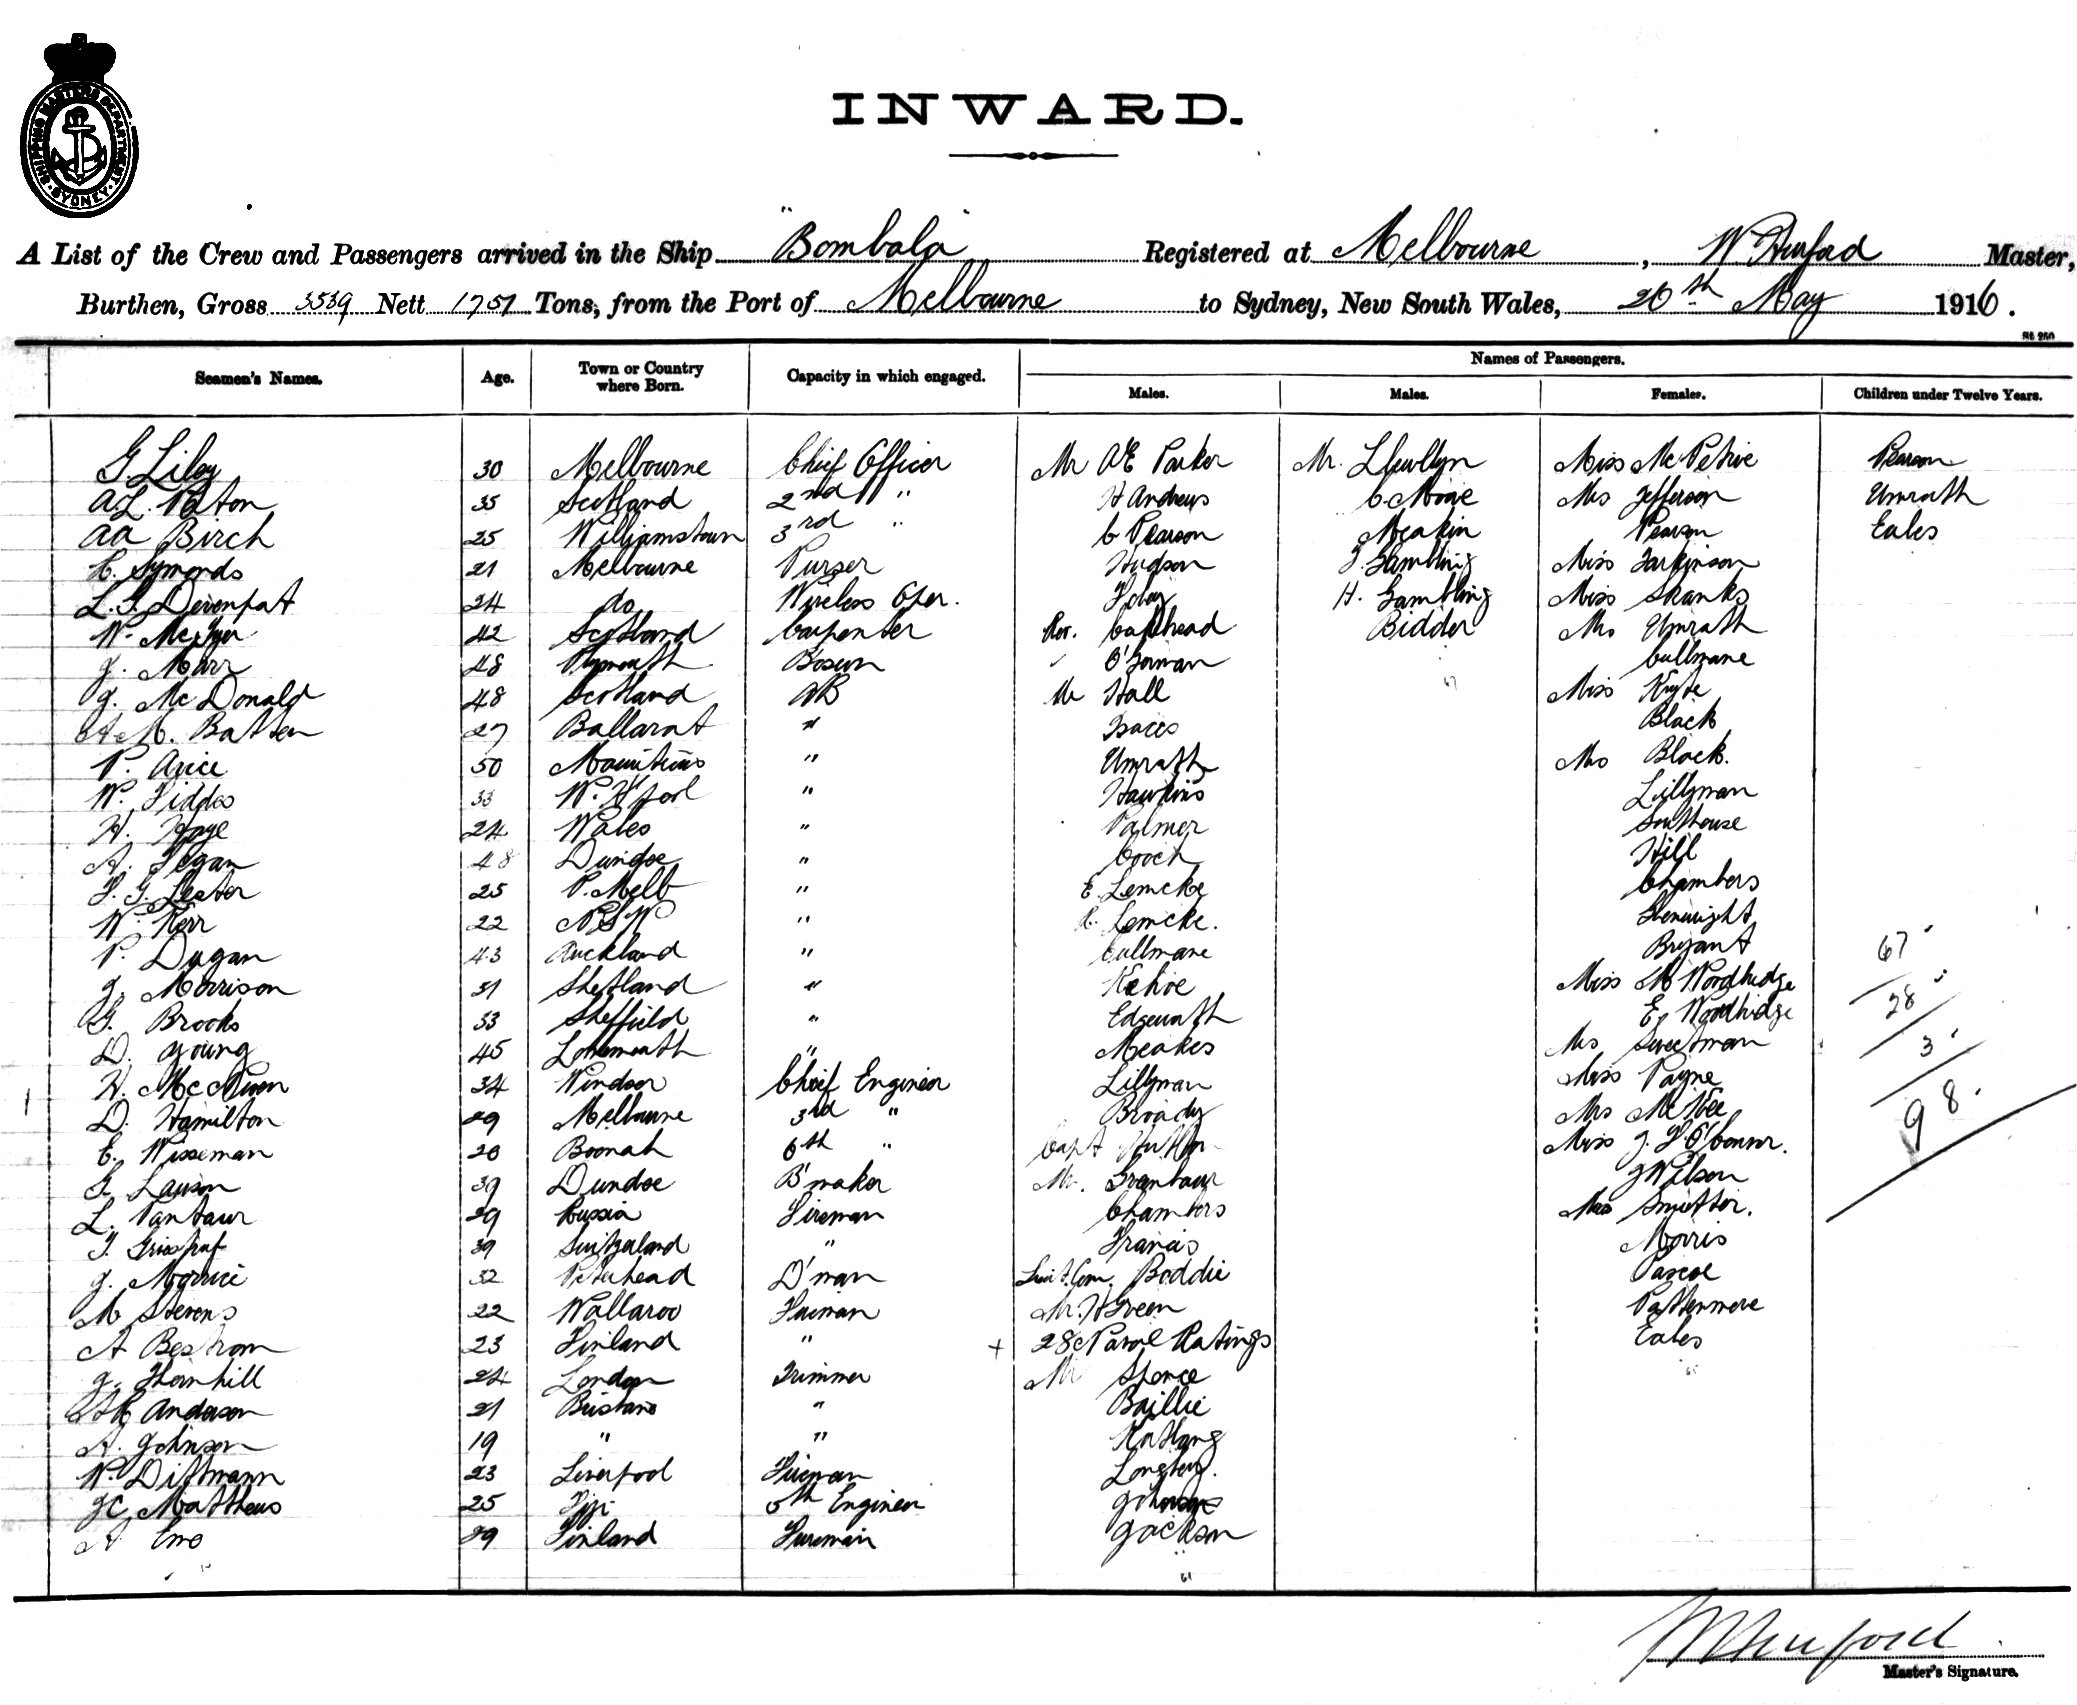 SHIPPING MASTERS DEPARTMENT
SYDNEY
INWARD.
A List of the Crew and Passengers arrived in the Ship "Bombala" Registered at Melbourne, W Hurford Master,
Burthen, Gross 3539 Nett 1751 Tons, from the Port of Melbourne to Sydney, New South Wales, 26th May 1916.
St 250
Seamen's Names. Age. Town or Country where Born. Capacity in which engaged. Names of Passengers.
Males. Males. Females. Children under Twelve Years.
G Liley 30 Melbourne Chief Officer Mr AE Parker Mr. Llewllyn Miss McPetrie Pearson
A.L. Paton 35 Scotland 2nd " H Andrews C. Moore Mrs Jefferson Umrath
AA Birch 25 Williamstown 3rd " C Pearson Meakin Pearson Eales
C. Symonds 21 Melbourne Purser Hudson J. Gambling Miss Parkinson
L.G. Devenport 24 do Wireless Oper. Foley H. Gambling Miss Shanks
W. 42 Scotland Carpenter Rev. Bidder Mrs Umrath
J. Marr 48 Plymouth Bosun " O'Gorman Cullinane
J. McDonald 48 Scotland AB Mr Hall 67 Miss
Batten 27 Ballarat " Isaacs Black
P. Arice 50 Mauritius " Umrath Mrs Black.
W. Fiddes 33 W. H'pool " Hawkins Lillyman
H. Haye 24 Wales " Palmer Southouse
A. Fegan 48 Dundee " Gooch Hill
F. G. Lester 25 P. Melb " E Lemcke Chambers
W. Kerr 22 NSW " R. Lemcke.
P. Dugan 43 Auckland " Cullinane Bryant 67
J. Morrison 31 Shetland " Kehoe Miss M Woodhidge
G. Brooks 33 Sheffield " E Woodhidge 28
D. Young 45 " Meakes Mrs Sweetman 3
H. 34 Windsor Chief Engineer Lillyman Miss Payne
D. Hamilton 29 Melbourne 3rd " Broady Mrs McKee 98.
E. Wisseman 20 Boonah 6th " Capt Miss J. F O'Connor.
G. Lawson 39 Dundee B'maker Mr. J Wilson
L. 29 Russia Fireman Chambers Mrs
39 Switzerland " Francis Morris
J. Morrice 32 Peterhead D'man Lieut. Com. Boddie Pascoe
M Stevens 22 Wallaroo Fireman Mr. H Green Pattenmore
A Bestrom 23 Finland " + 28 Naval Ratings Eales
J. Thornhill 24 London Trimmer Mr Spence
Anderson 21 Brisbane " Baillie
A. Johnson 19 " "
W. Dittmann 23 Liverpool Fireman
JC Matthews 25 Fiji 5th Engineer
A Eno 29 Finland Fireman Jackson
61
W Hurford
Master's Signature.